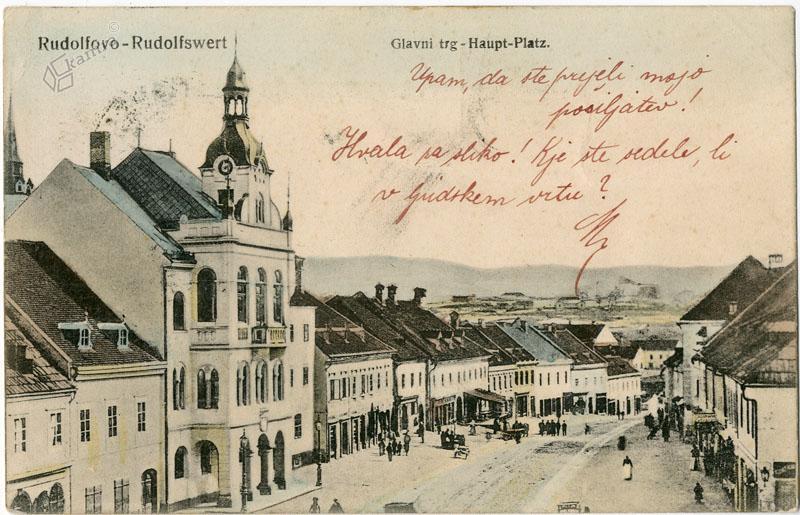 Rudolfovo-Rudolfswert
Glavni trg-Haupt-Platz.
kamra
Upam, da ste prijeli mojo
pošiljatev!
Hvala za sliko! Kje ste sedele, li
v ljudskem vrtu?